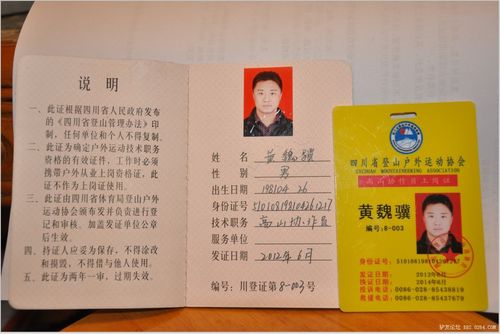 说 明
一、此证根据四川省人民政府发布
的《四川省登山管理办法》印
制，任何单位和个人不得复制。
二、此证为确定户外运动技术职务
资格的有效证件，工作时必须
携带户外从业上岗资格证，此
证不作为上岗证使用。
三、此证由四川省体育局登山户外
运动协会颁发并负责进行登
记和审核。加盖发证单位公章
后生效。
四、持证人应妥为保存，不得涂改
和损毁，不得借与他人使用。
五、此证为两年一审，过期失效。
姓 名 黄魏骥
性 别 男
出生日期 198104 26
身份证号
技术职务 高山协作员
服务单位
发证日期 2012年6月
编号：川登证第8-003号
四川省登山户外运动协会
SICHUAN MOUNTAINEERING ASSOCIATION
高山协作员上岗证
黄魏骥
编号：8-003
身份证号：
发证日期：2012年6月
换证日期：2014年6月
投诉电话：0086-028-85438819
救援电话：0086-028-85437679
驴友论坛 BBS.8264.COM